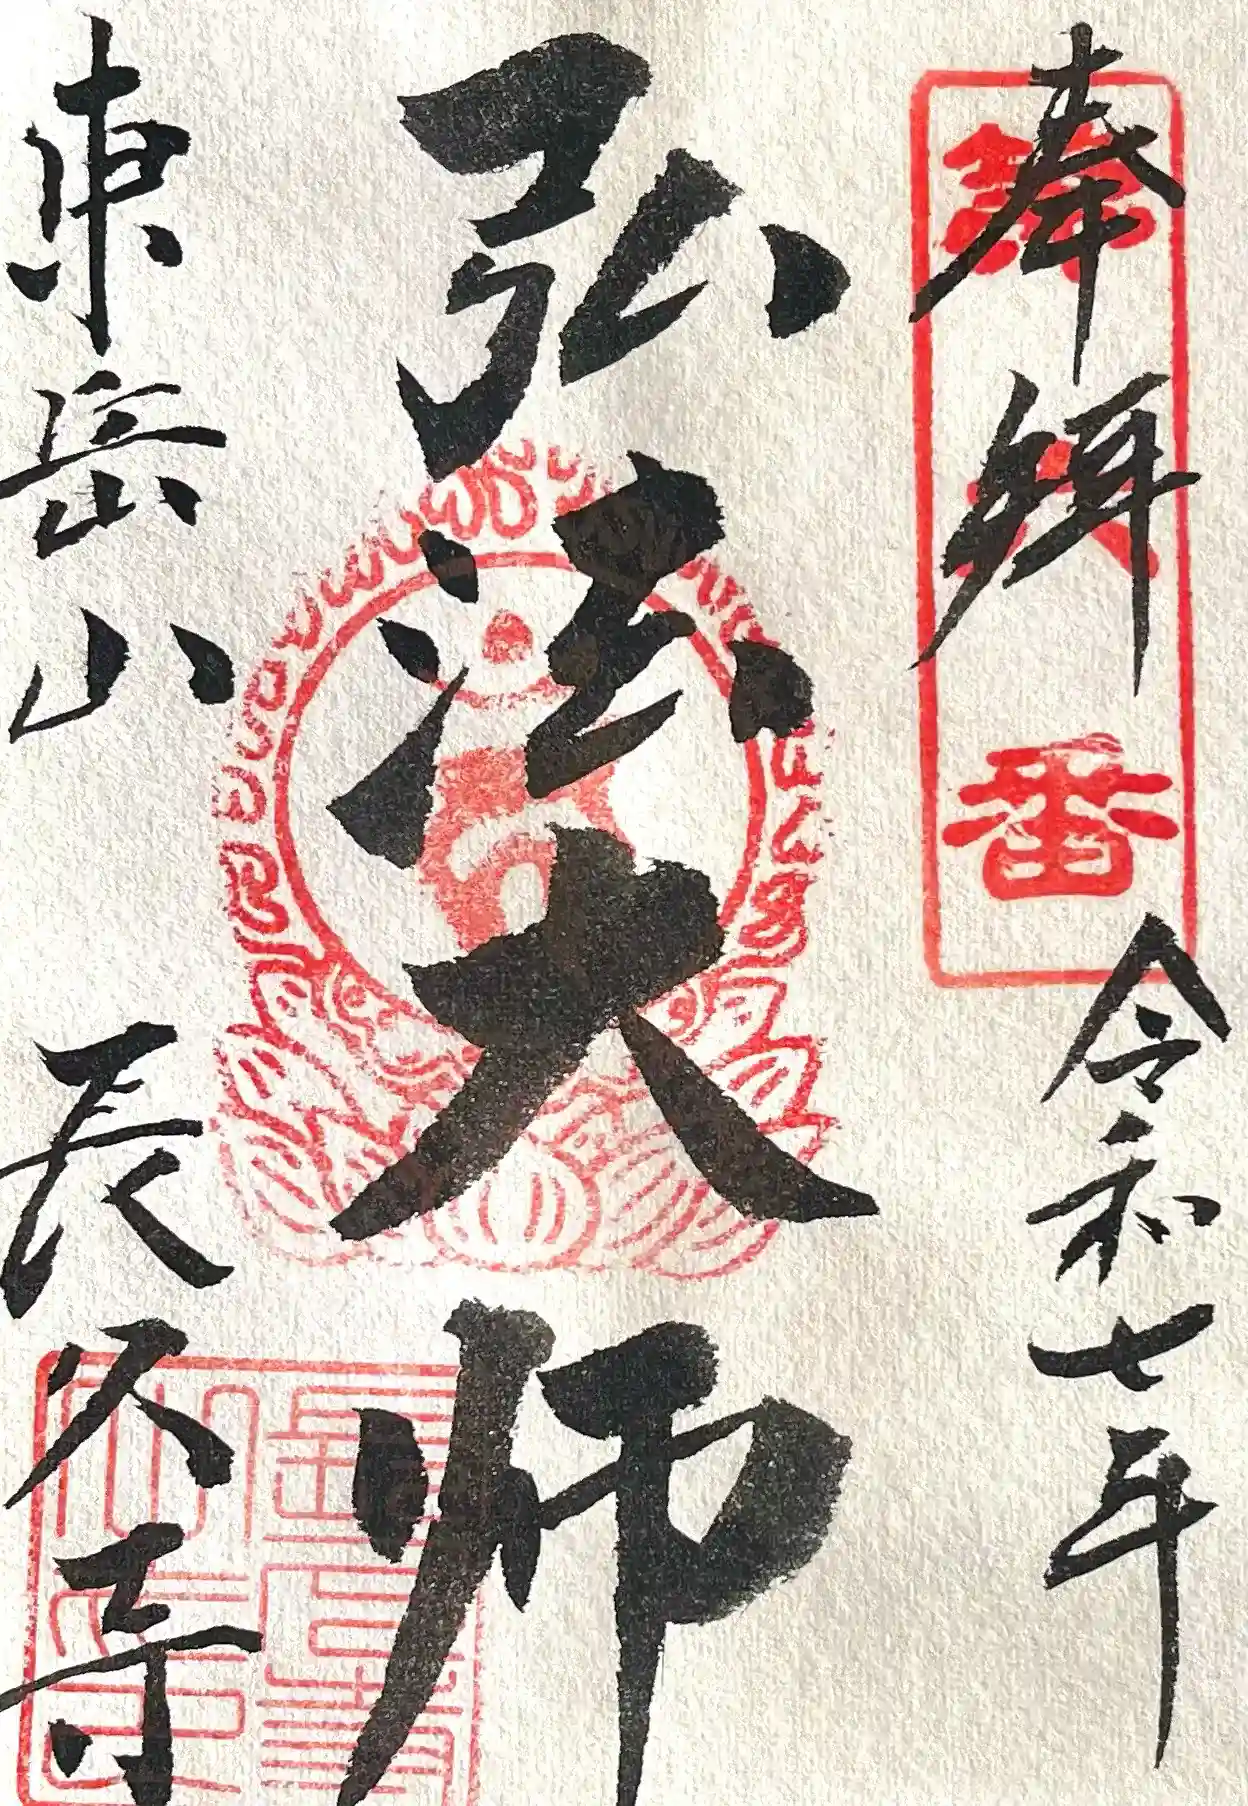 奉拝
第六番
令和七年
弘法大師
東岳山
長久寺